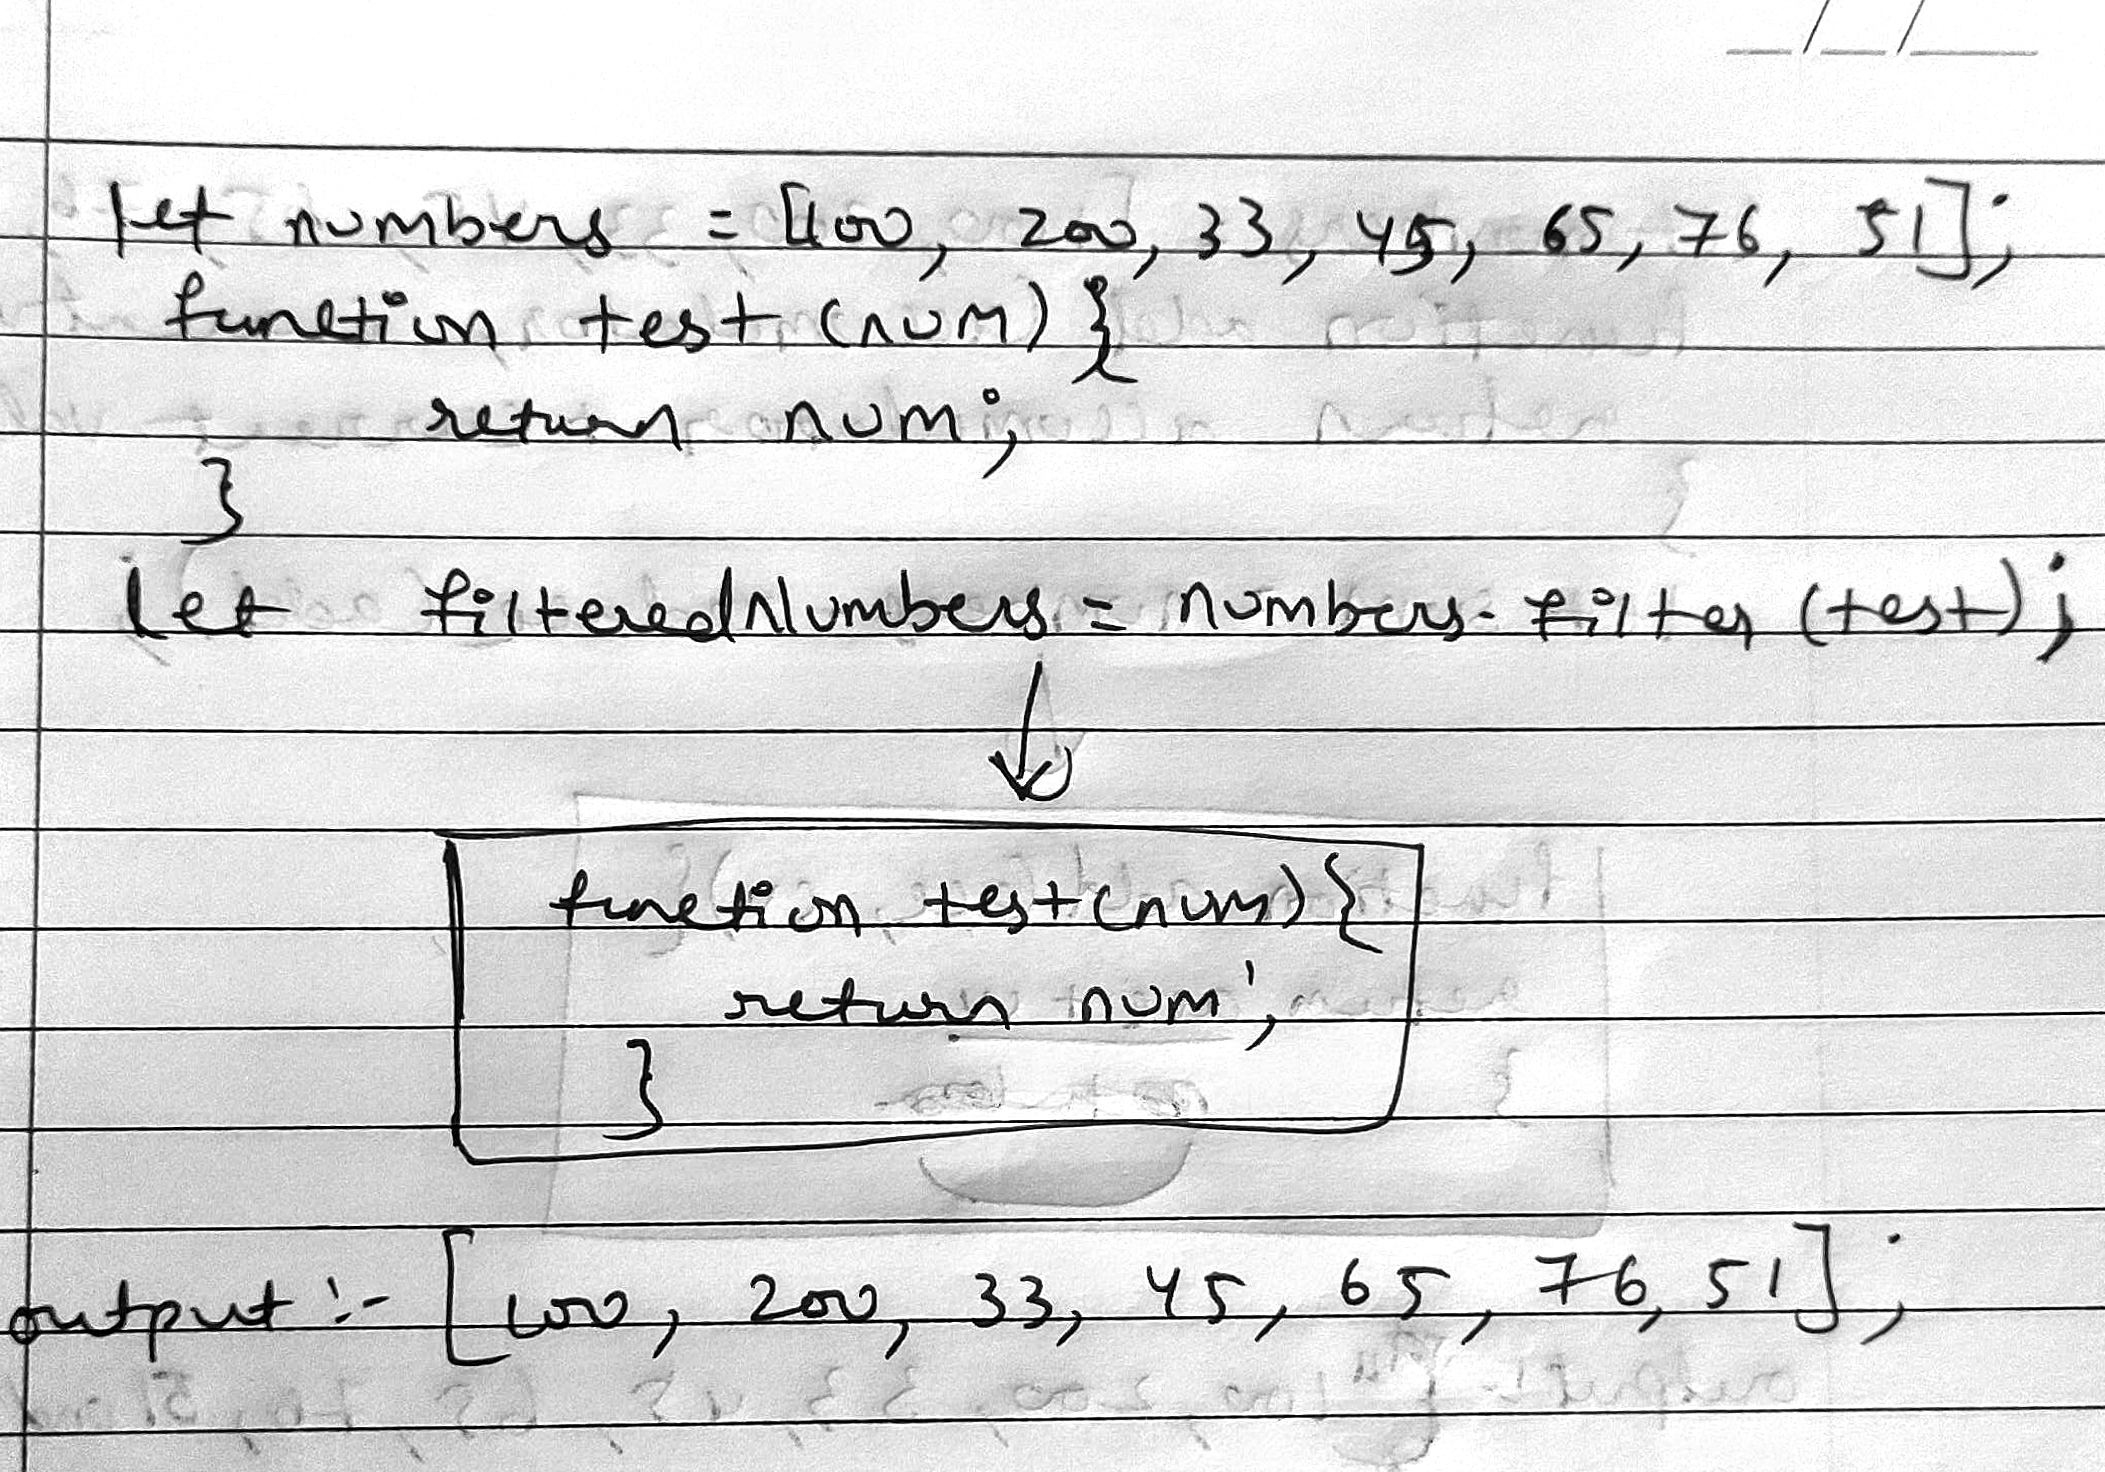 let numbers = [100, 200, 33, 45, 65, 76, 51];
function test (num) {
return num;
}
let filteredNumbers = numbers. filter (test);
function test(num) {
return num;
}
output :- [100, 200, 33, 45, 65, 76, 51];